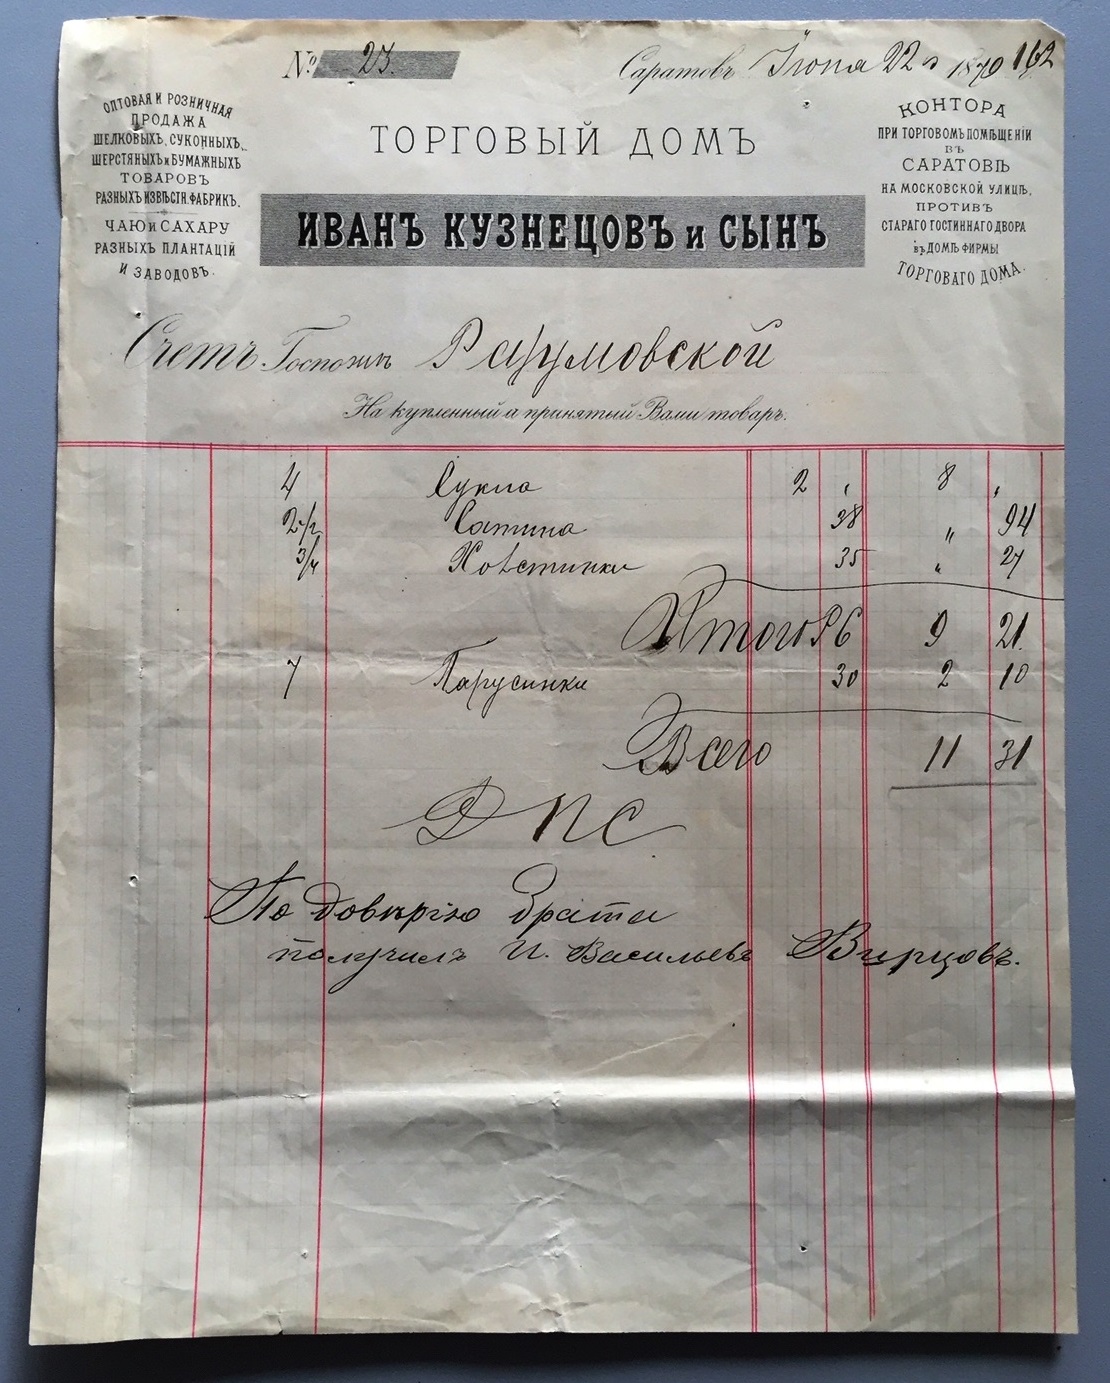 № 23.
Саратовъ Iюня 22 дня 1870
162
ОПТОВАЯ И РОЗНИЧНАЯ
ПРОДАЖА
ШЕЛКОВЫХЪ, СУКОННЫХЪ,
ШЕРСТЯНЫХЪ и БУМАЖНЫХЪ
ТОВАРОВЪ
РАЗНЫХЪ ИЗВѢСТН. ФАБРИКЪ.
ЧАЮ и САХАРУ
РАЗНЫХЪ ПЛАНТАЦIЙ
И ЗАВОДОВЪ.
ТОРГОВЫЙ ДОМЪ
ИВАНЪ КУЗНЕЦОВЪ и СЫНЪ
КОНТОРА
ПРИ ТОРГОВОМЪ ПОМѢЩЕНIИ
ВЪ
САРАТОВѢ
НА МОСКОВСКОЙ УЛИЦѢ,
ПРОТИВЪ
СТАРАГО ГОСТИННАГО ДВОРА
въ ДОМѢ ФИРМЫ
ТОРГОВАГО ДОМА.
Счетъ Госпожѣ Разумовской
На купленный и принятый Вами товаръ.
4 Сукна 2 „ 8 „
2 1/2 Сатина 38 „ 94
3/4 Холстинки 35 „ 27
Итого Рб 9 21.
7 Парусинки 30 2 10
Всего 11 31
По довѣрiю брата
получилъ И. Васильевъ Вирцовъ.